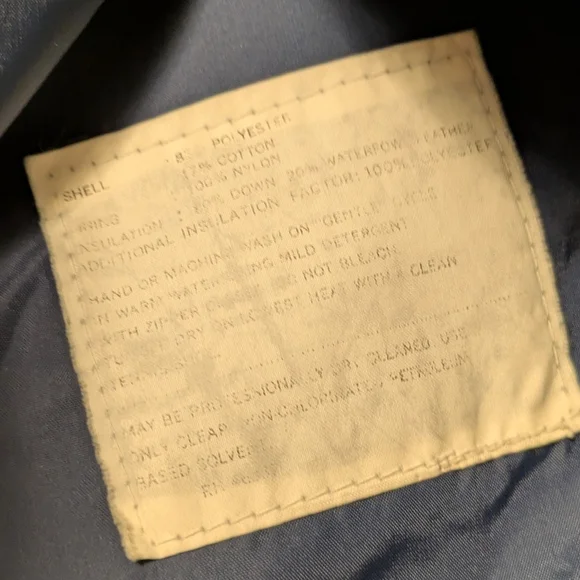 SHELL : 8 POLYESTER
17% COTTON
100% NYLON
INSULATION : DOWN 20% WATERFOWL FEATHER
ADDITIONAL INSULATION FACTOR: 100% POLYESTER
HAND OR MACHINE WASH ON "GENTLE" CYCLE
IN WARM WATER USING MILD DETERGENT
WITH ZIPPER DO NOT BLEACH
DRY ON LOWEST HEAT WITH A CLEAN
TENNIS
MAY BE PROFESSIONALLY DRY CLEANED USE
ONLY CLEAR, NON-CHLORINATED, PETROLEUM
BASED SOLVE
RN